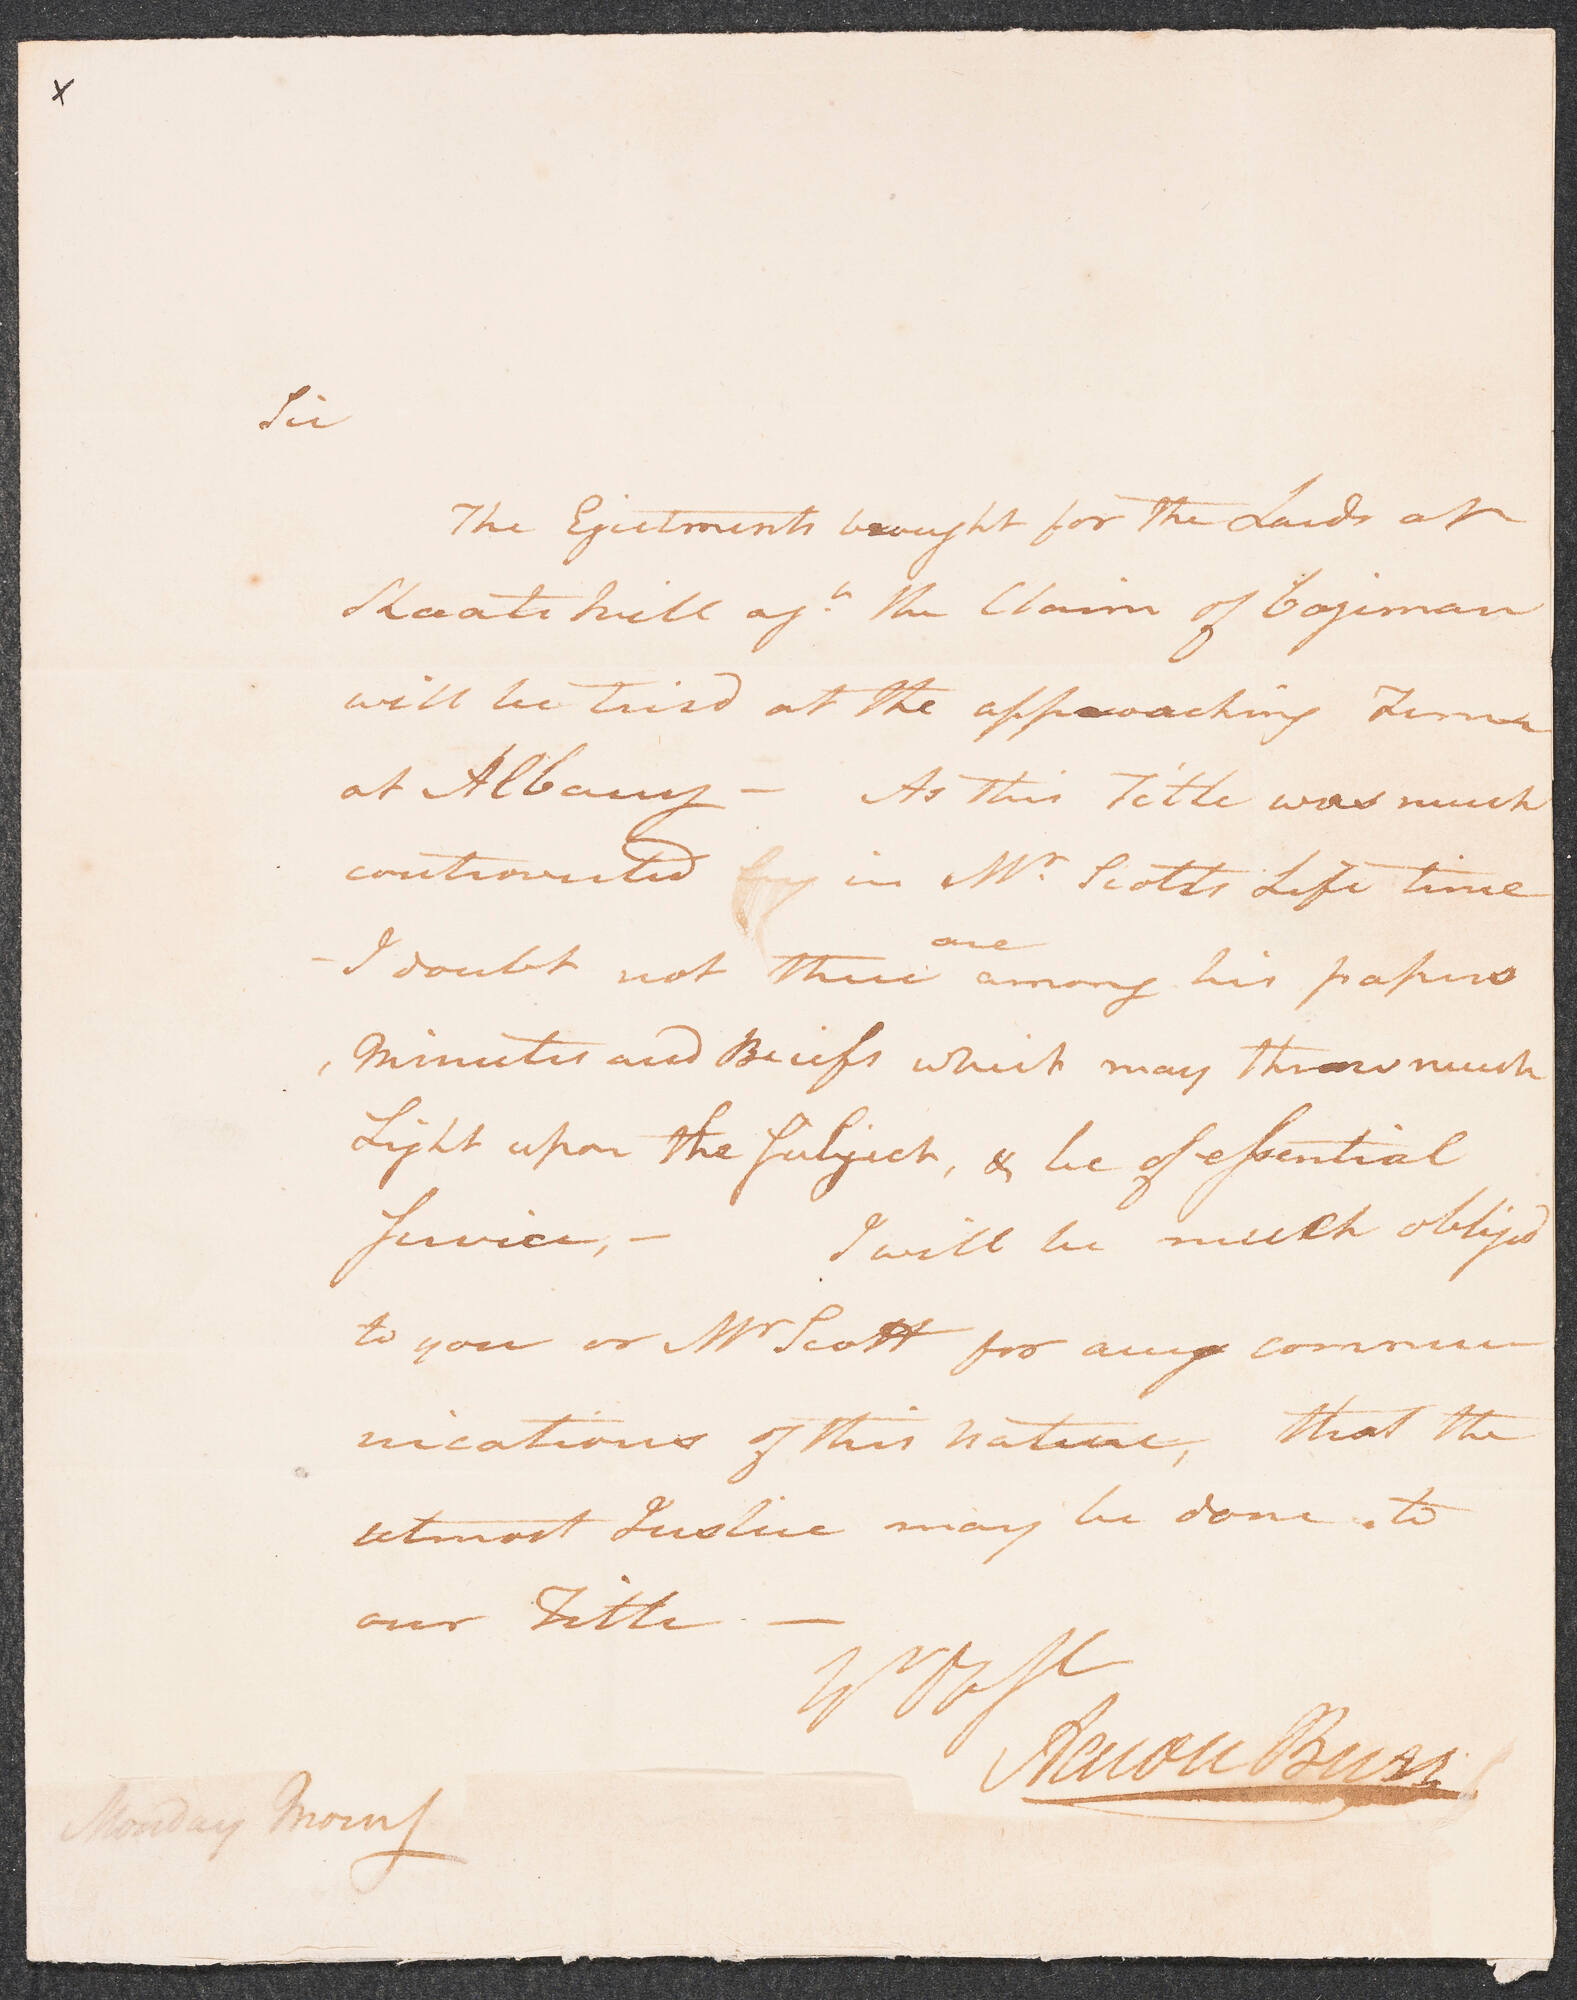 x
Sir
The Ejectments brought for the Lands at
Skaatskill agt. the Claim of Cojiman
will be tried at the approaching Term
at Albany — As this Title was much
controverted by in Mr. Scotts Life time
- I doubt not there are among his papers
, Minutes and Briefs which may throw much
Light upon the Subject, & be of essential
Service, — I will be much obliged
to you or Mr Scott for any commu
nications of this nature, that the
utmost Justice may be done to
our Title —
Aaron Burr
Monday Morng